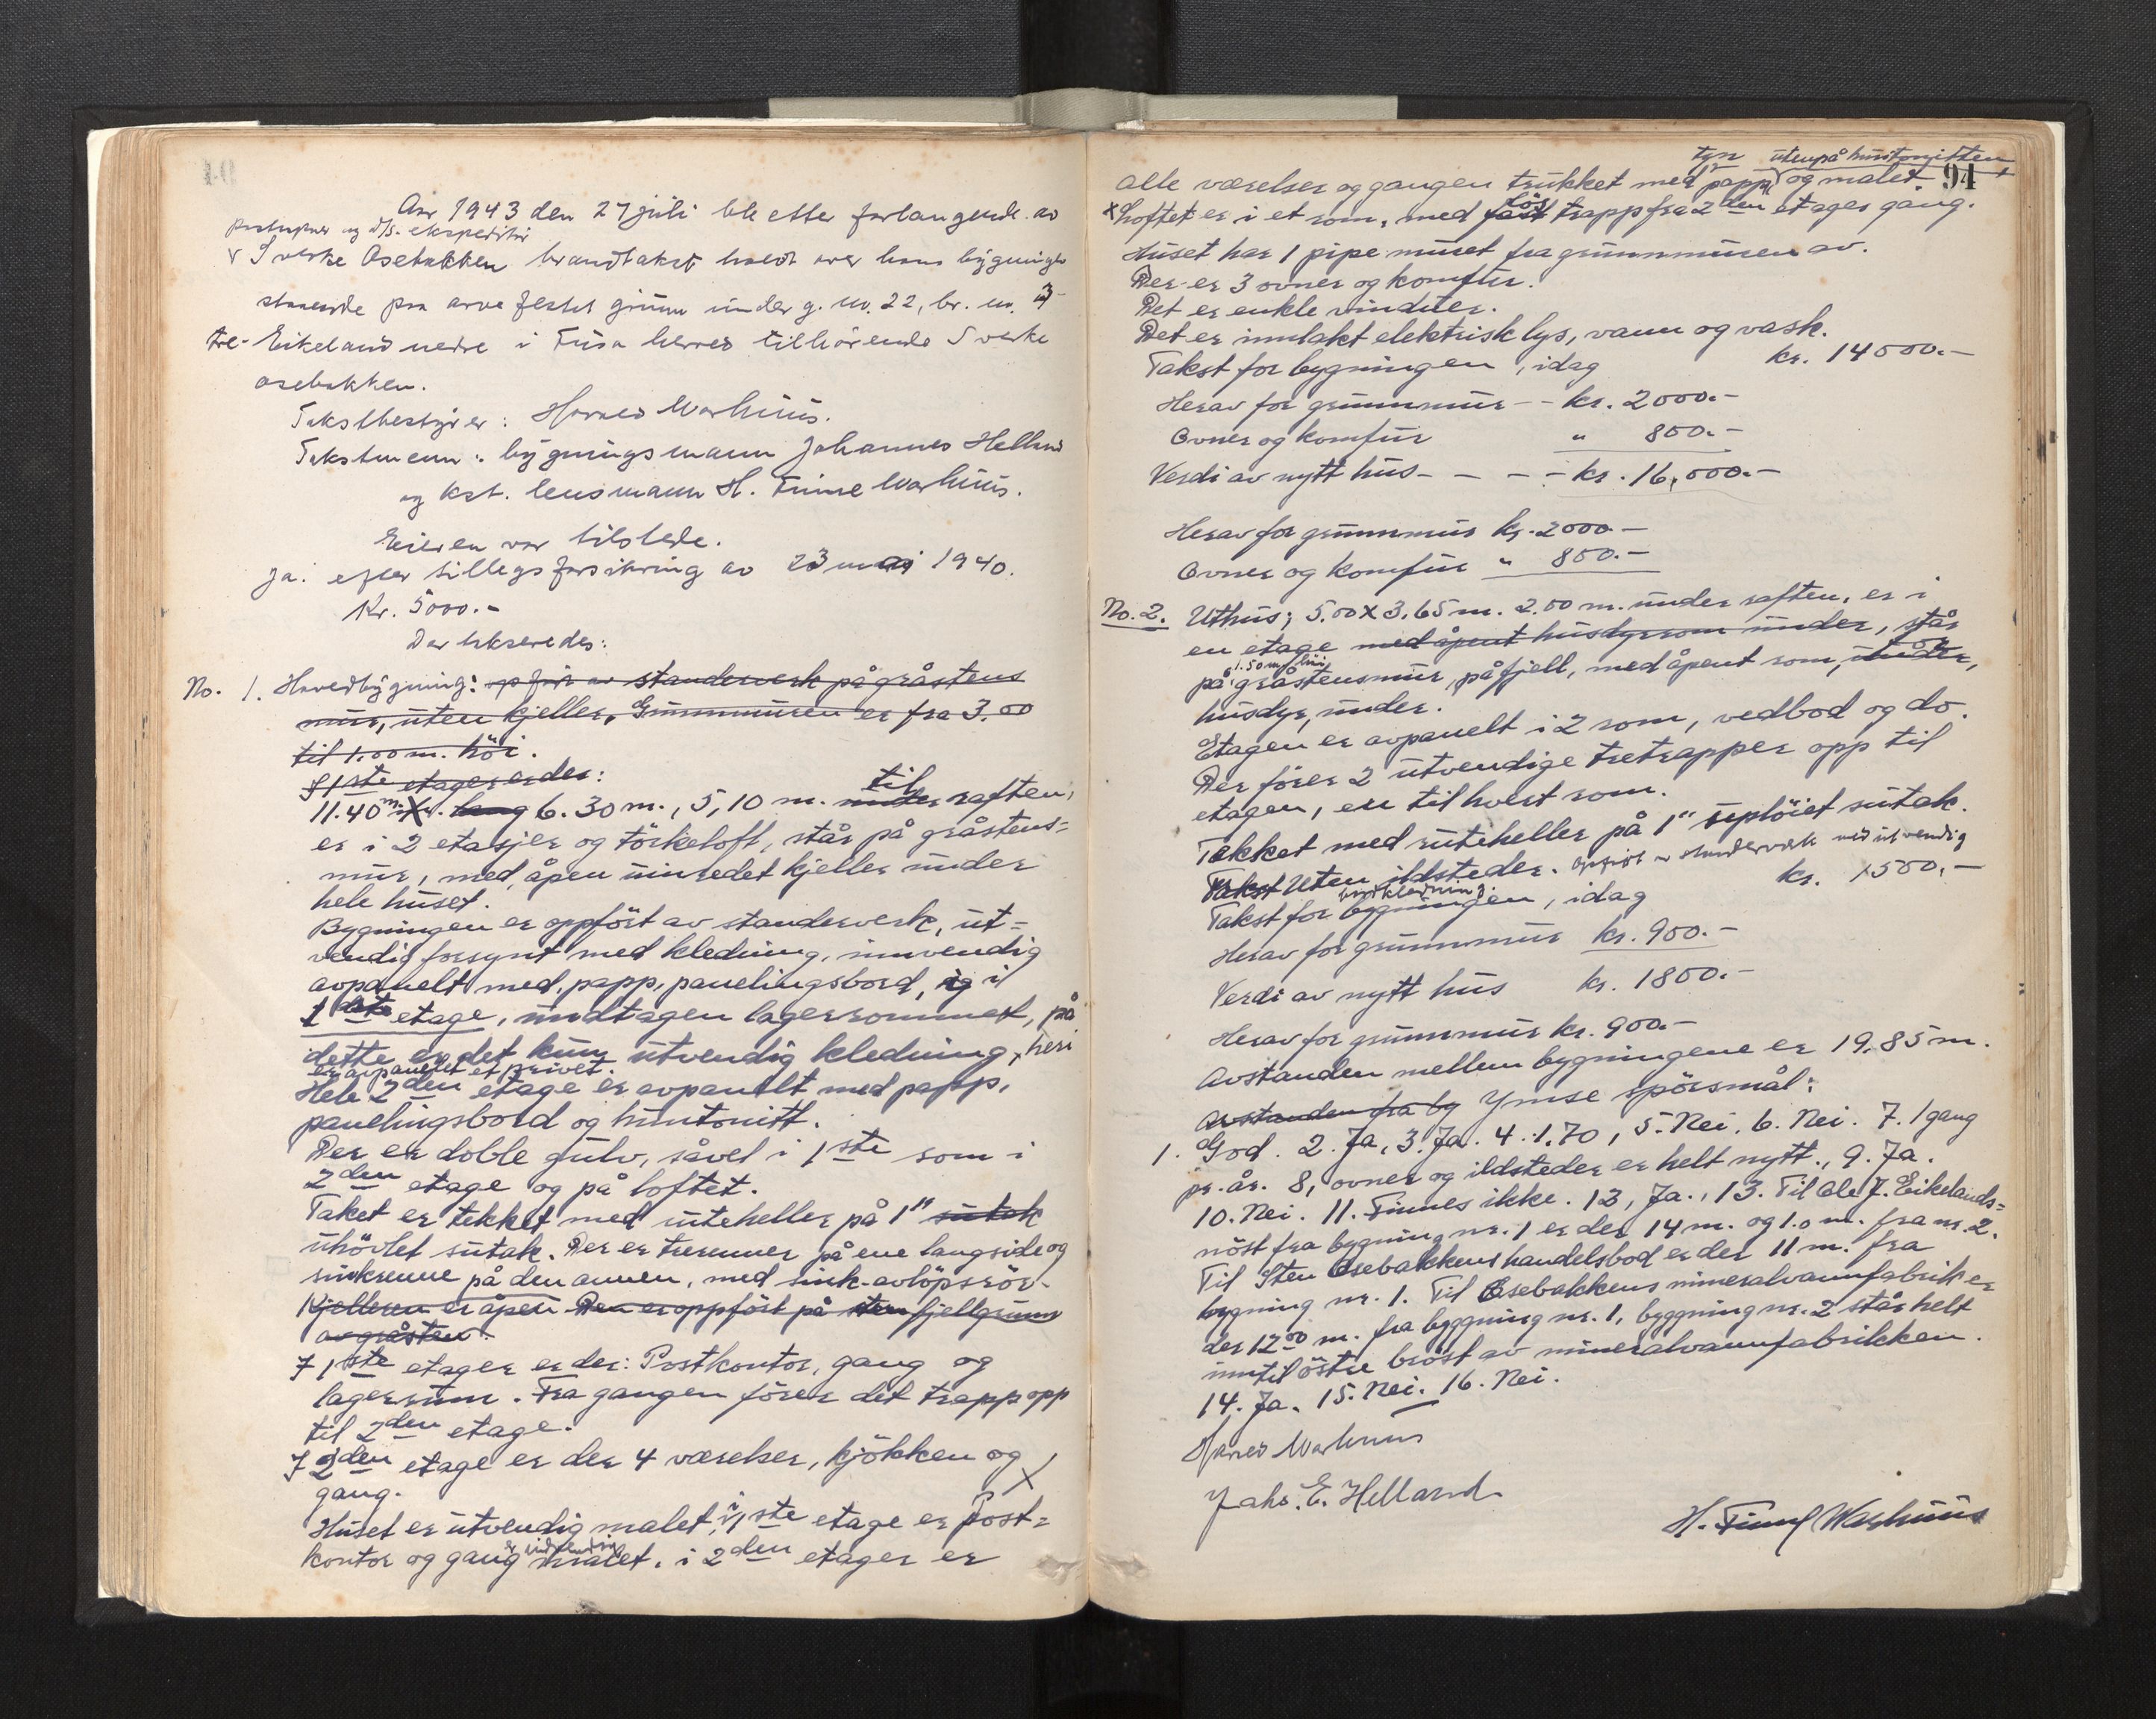 Aar 1943 den 27 juli ble etter forlangende av
postopner og d/s. ekspeditör
Sverke Osebakken brandtakst holdt over hans bygninger
staaende paa arvefestet grunn under g. nr. 22, br. nr. 3
tre- Eikeland nedre i Fusa herred tilhörende Sverke
osebakken.
Takstbestyrer: Hannes Warhuus.
Takstmenn: bygningsmann Johannes Helland
og kst. lensmann H. Finne Warhuus.
Eieren var tilstede.
Ja. efter tillegsforsikring av 23 mai 1940.
Kr. 5000.-
Der takseredes:
No. 1. Hovedbygning: opför av standerverk på gråstens
mur, uten kjeller, Grunnmuren er fra 3.00
til 1.00 m. höi.
I 1ste etager er der:
11.40 m. X lang 6.30 m., 5,10 m. under til raften,
er i 2 etasjer og törkeloft, står på gråstens=
mur, med åpen uinredet kjeller under
hele huset.
Bygningen er oppfört av standerverk, ut=
vendig forsynt med kledning, innvendig
avpanelt med, papp, panelingsbord, og i
1ste etage, undtagen lagerrommet, på
dette er det kun utvendig kledning, heri
er avpanelet et privet.
Hele 2den etage er avpanelt med papp,
panelingsbord og huntonitt.
Der er doble gulv, såvel i 1ste som i
2den etage og på loftet.
Taket er tekket med ruteheller på 1" sutak
uhövlet sutak. Der er trerenner på ene langside og
sinkrenne på den annen, med sink-avlöpsrör.
Kjelleren er åpen Den er oppfört på sten fjellgrunn
av gråsten.
I 1ste etager er der: Postkontor, gang og
lagerrum. Fra gangen förer det trapp opp
til 2den etage.
I 2den etage er der 4 værelser, kjökken og
gang. X
Huset er utvendig malet, i 1ste etage er Post=
kontor og gang er indvendig malet. i 2den etager er
94
tyn utenpå huntonitten
alle værelser og gangen trukket med papp og malet.
x Loftet er i et rom, med fast lös trapp fra 2den etages gang.
Huset har 1 pipe muret fra grunnmuren av.
Der er 3 ovner og komfur.
Det er enkle vinduer.
Det er innlakt elektrisk lys, vann og vask.
Takst for bygningen, idag kr. 14000.-
Herav for grunnmur -- kr. 2000.-
Ovner og komfur " 800.-
Verdi av nytt hus - - - - kr. 16,000.-
Herav for grunnmur kr. 2000.-
Ovner og komfur " 800.-
No. 2. Uthus; 5.00 X 3.65 m. 2.00 m. under raften, er i
en etage med åpent husdyrrom under, står
på 1.50 m. höi gråstensmur, på fjell, med åpent rom, under, for
husdyr, under.
Etagen er avpanelt i 2 rom, vedbod og do.
Der förer 2 utvendige tretrapper opp til
etagen, en til hvert rom.
Tekket med ruteheller på 1" uplöiet sutak.
Takst Uten ildsteder. Oppfört av standerverk med utvendig
bordkledning.
Takst for bygningen, idag kr. 1500.-
Herav for grunnmur kr. 900.-
Verdi av nytt hus kr. 1800.-
Herav for grunnmur kr. 900.-
Avstanden mellem bygningene er 19.85 m.
Avstanden fra by Ymse spörsmål:
1. God. 2. Ja, 3. Ja. 4. 1.70, 5. Nei. 6. Nei. 7. 1 gang
pr. år. 8, ovner og ildsteder er helt nytt., 9. Ja.
10. Nei. 11. Finnes ikke. 12, Ja., 13. Til Ole J. Eikelands=
nöst fra bygning nr. 1 er der 14 m. og 1.0 m. fra nr. 2.
Til Sten Osebakkens handelsbod er der 11 m. fra
bygning nr. 1. Til Osebakkens mineralvannfabrik er
der 12 00 m. fra byggning nr. 1, byggning nr. 2 står helt
inntil östre bröst av mineralvannfabrikken.
14. Ja. 15. Nei. 16. Nei.
Hannes Warhuus
Johs. E. Helland
H. Finne Warhuus